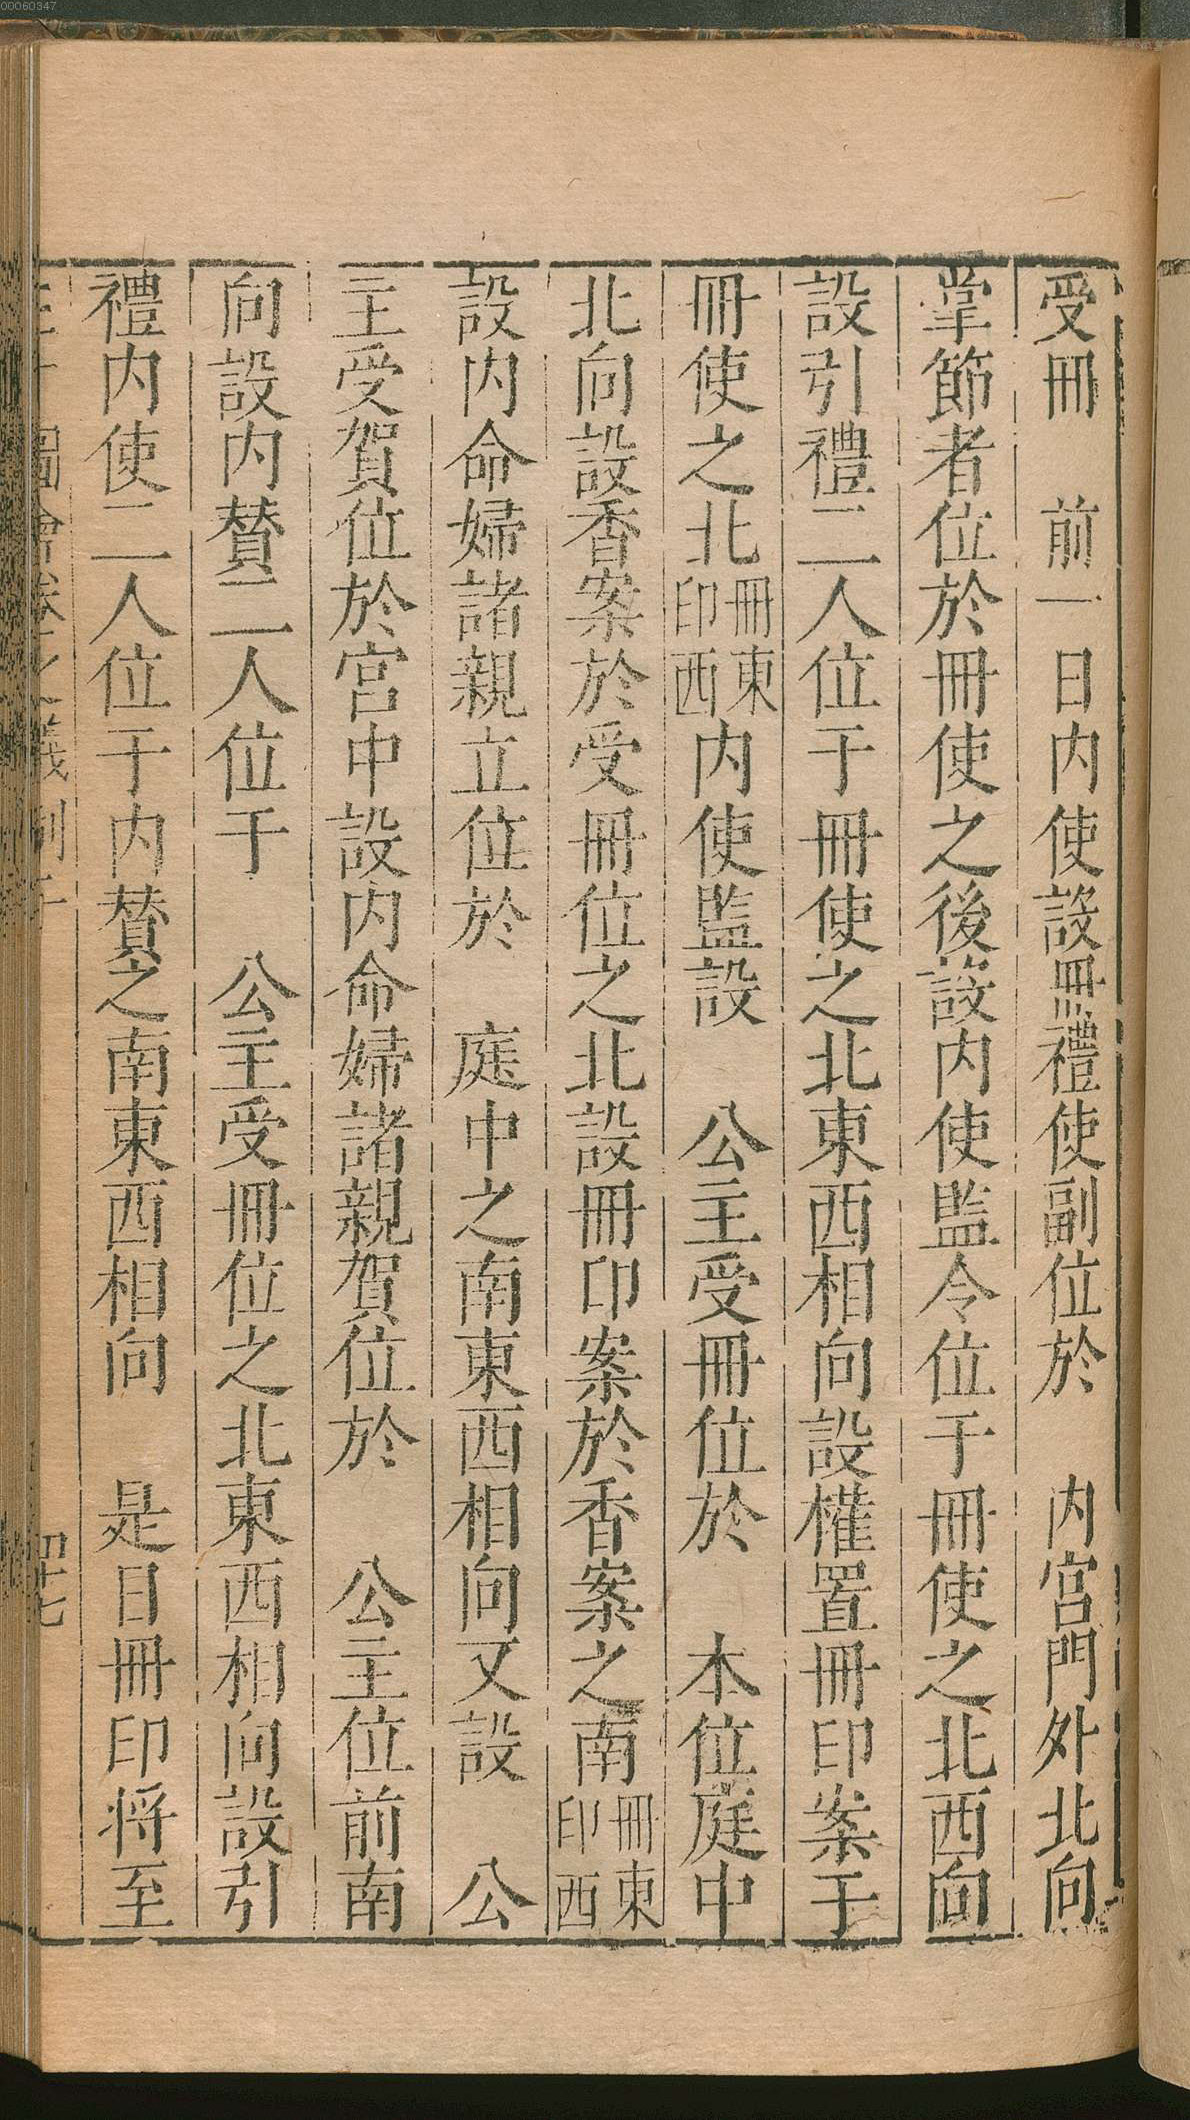 00060347
受冊　前一日内使設冊禮使副位於　内宮門外北向
掌節者位於冊使之後設内使監令位于冊使之北西向
設引禮二人位于冊使之北東西相向設權置冊印案于
冊使之北冊東印西内使監設　公主受冊位於　本位庭中
北向設香案於受冊位之北設冊印案於香案之南冊東印西
設内命婦諸親立位於　庭中之南東西相向又設　公
主受賀位於宮中設内命婦諸親賀位於　公主位前南
向設内贊二人位于　公主受冊位之北東西相向設引
禮内使二人位于内贊之南東西相向　是日冊印將至
圖會卷之 儀制
四十七